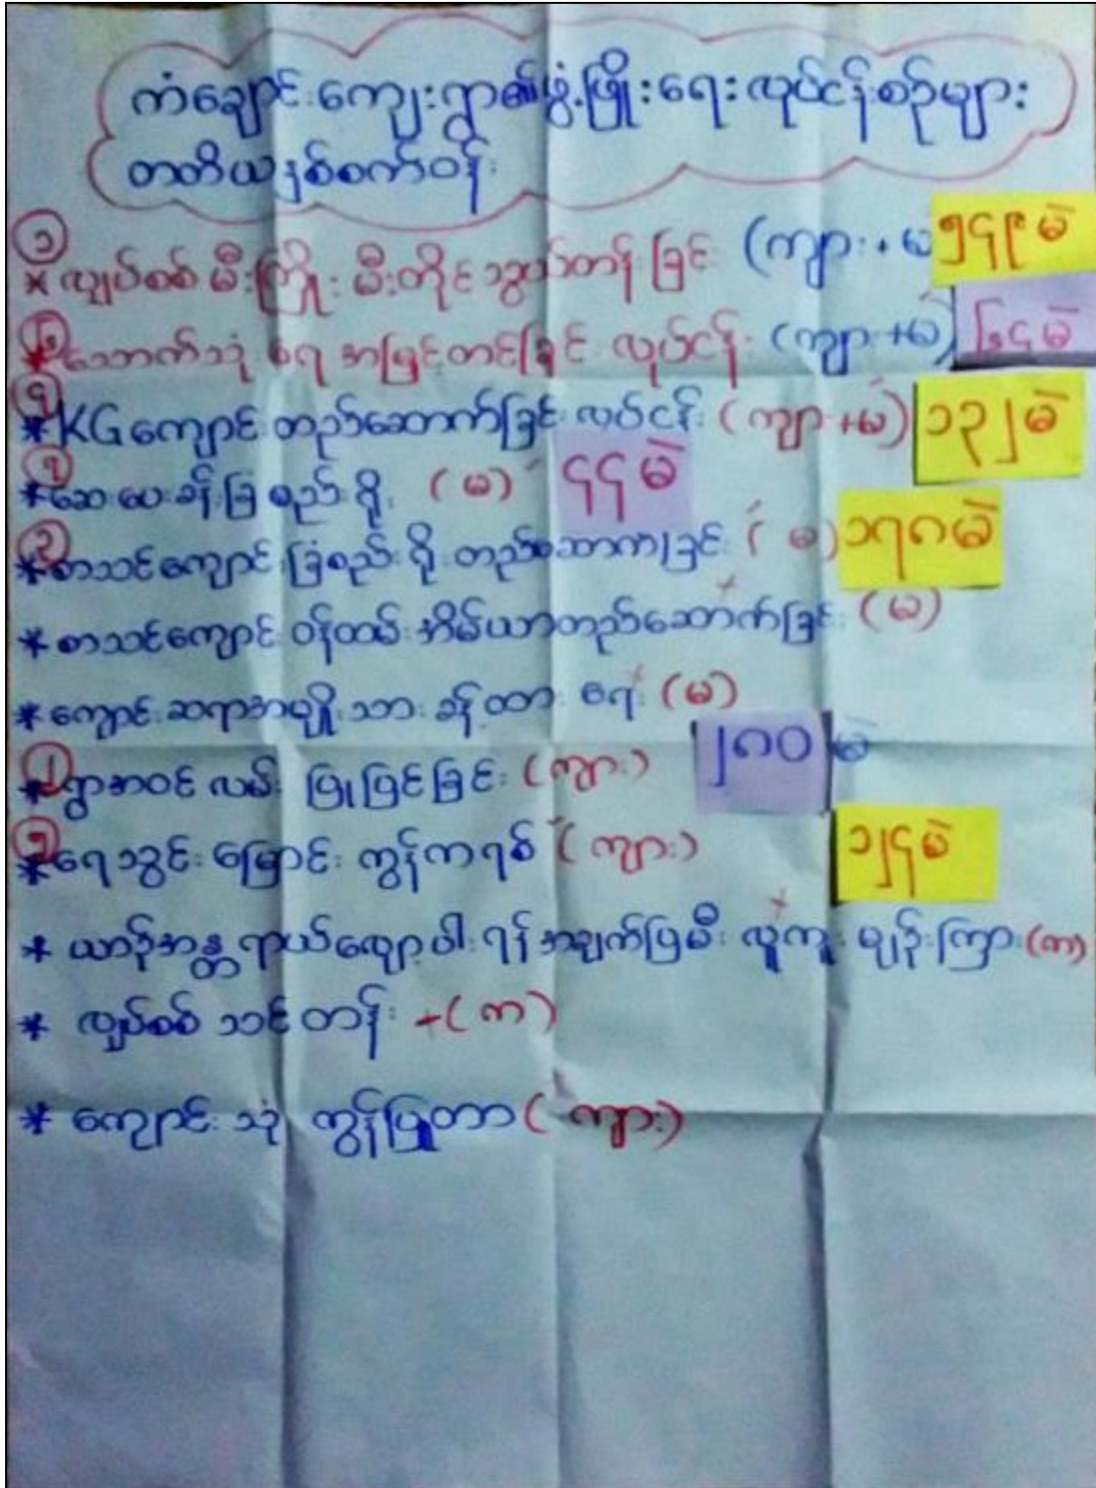 ကံချောင်းကျေးရွာ၏ဖွံ့ဖြိုးရေးလုပ်ငန်းစဉ်များ
တတိယနှစ်စက်ဝန်း
၁
* လျှပ်စစ် မီးကြိုး မီးတိုင် သွယ်တန်းခြင်း (ကျား + မ ၅၄၉ မဲ
* သောက်သုံးရေ အမြင့်တင်ခြင်း လုပ်ငန်း (ကျား+မ) ၆၄ မဲ
* KG ကျောင်း တည်ဆောက်ခြင်း လုပ်ငန်း (ကျား+မ) ၁၃၂ မဲ
* ဆေးပေးခန်း ခြံစည်းရိုး (မ) ၄၄ မဲ
* စာသင်ကျောင်း ခြံစည်းရိုး တည်ဆောက်ခြင်း (မ) ၁၇၈ မဲ
* စာသင်ကျောင်း ဝန်ထမ်းအိမ်ယာတည်ဆောက်ခြင်း (မ)
* ကျောင်းဆရာအမျိုးသား ခန့်ထားရေး (မ)
၂
* ရွာအဝင် လမ်း ပြုပြင်ခြင်း (ကျား) ၂၈၀ မဲ
* ရေသွင်းမြောင်း ကွန်ကရစ် (ကျား) ၁၂၄ မဲ
* ယာဉ်အန္တရာယ်လျော့ပါးရန် အချက်ပြမီး လူကူးမျဉ်းကြား (က)
* လျှပ်စစ် သင်တန်း - (က)
* ကျောင်းသုံး ကွန်ပြူတာ (ကျား)